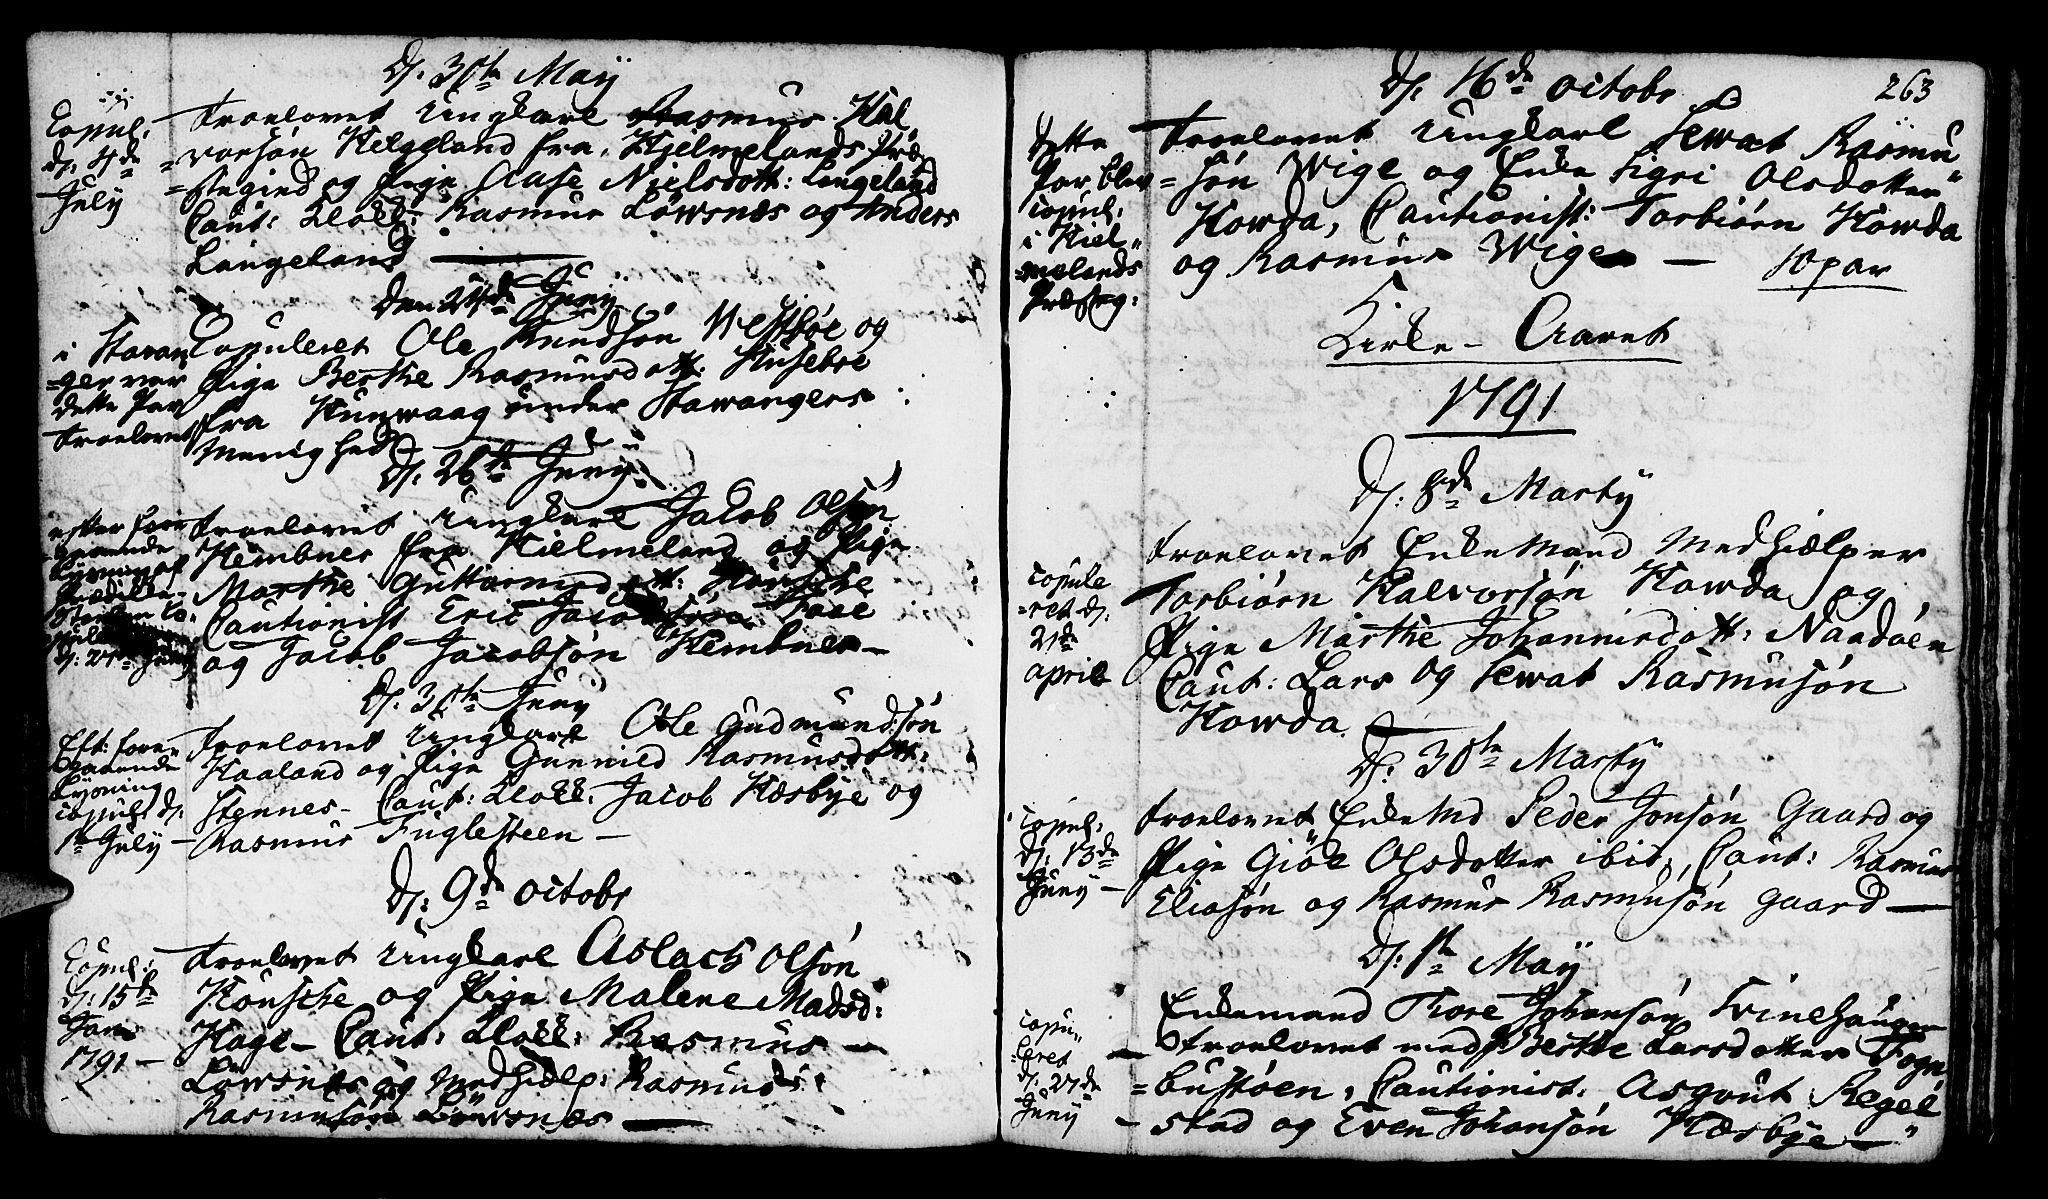 D. 30te Maÿ
Copul:
d. 4de
July
Troelovet Ungkarl Rasmus Hal
=vorsøn Helgeland fra Hjelmelands Præ
=stegield og Pige Aase Nielsdott: Langeland
Caut: Klokk: Rasmus Løwsnæs og Anders
Langeland
Den 24de Junÿ
i Stavan
=ger var
dette Par
troelovet
Copuleret Ole Knudsøn Westbøe og
Pige Berthe Rasmusdott: Husebøe
fra Hunwaag under Stawangers
Menighed
D. 26de Junÿ
efter fore
gaaende
Lysning af
Prædike-
Stoelen Co-
d: 27de Juny
Troelovet Ungkarl Jacob Olsøn
Hembnes fra Hielmeland og Pige
Marthe Guttormsdott: Hønsche
Cautionist Eric Jacobsøn Foss
og Jacob Jacobsøn Hembnes –
D. 30te Juny
Eft: fore-
gaaende
Lysning
copul: d.
1te July –
Troelovet Ungkarl Ole Gudmundsøn
Haaland og Pige Gunnild Rasmusdott:
Stennes – Caut: Klokk. Jacob Hæsbye og
Rasmus Fuglesteen –
D. 9de octobr
Copul:
d: 15de
Jan
1791 –
Troelovet Ungkarl Aslach Olsøn
Hønsche og Pige Malene Madsd:
Hage – Caut: Klokk: Rasmus –
Løwsnæs og Medhielp: Rasmus
Rasmusøn Løwsnæs –
263
D. 16de octobr
Dette
Par blev
copul:
i Hiel
=melands
Præsteg:
Troelovet Ungkarl Sewat Rasmu
=søn Wige og Enke Sigri Olsdotter
Howda, Cautionist: Torbiørn Howda
og Rasmus Wige – 10 par
Kirke-Aaret
1791
D. 8de Marty
copule
=ret d.
21de
april
Troelovet Enkemand Medhielper
Torbiørn Halvorsøn Howda og
Pige Marthe Johannisdott: Naadøen
Caut: Lars og Sewat Rasmusøn
Howda.
D. 30te Marty
Copul:
d: 13de
Juny –
Troelovet Enkemd Peder Jonsøn Gaard og
Pige Giøe Olsdotter ibid, Caut: Rasmus
Eliasøn og Rasmus Rasmusøn Gaard –
D. 1te Maÿ
copu-
leret
d. 27de
Juny
Enkemand Thore Johansøn Tvinehaugen
troelovet med Berthe Larsdotter Fogn
=bustøen, Cautionist: Asgout Regel
=stad og Even Johansøn Hæsbye –